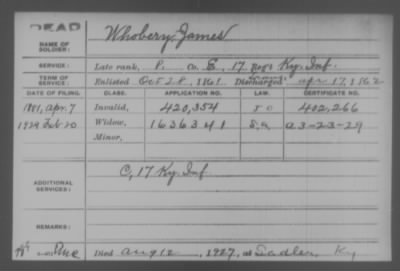 DEAD
NAME OF SOLDIER: Whobery, James
SERVICE: Late rank, P. Co. E, 17 Reg't Ky. Inf.
TERM OF SERVICE: Enlisted Oct 28, 1861 Discharged Apr 17, 1862
DATE OF FILING. CLASS. APPLICATION NO. LAW. CERTIFICATE NO.
1881, Apr. 7 Invalid, 420,354 402,266
1929 Feb 20 Widow, 1636341 a3-23-29
Minor,
ADDITIONAL SERVICES: C, 17 Ky. Inf
REMARKS:
Died Aug 12, 1927, at Sadler, Ky